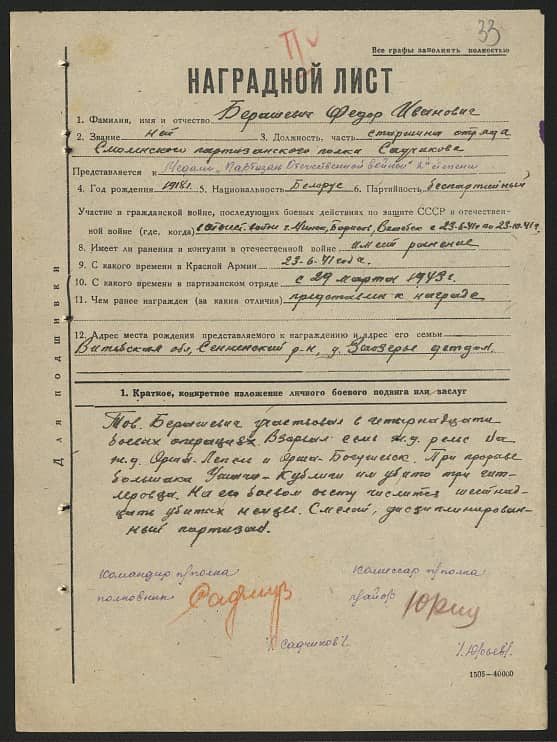 33
Все графы заполнять полностью
НАГРАДНОЙ ЛИСТ
1. Фамилия, имя и отчество Берашевич Федор Иванович
2. Звание нет 3. Должность, часть старшина отряда
Смоленского партизанского полка Садчикова
Представляется к Медаль „Партизан Отечественной войны" 2й степени
4. Год рождения 1918г. 5. Национальность Белорус 6. Партийность беспартийный
Участие в гражданской войне, последующих боевых действиях по защите СССР и отечествен-
ной войне (где, когда) в отечест. войне г. Минск, Борисов, Витебск с 23-6-41г по 23-10-41г.
8. Имеет ли ранения и контузии в отечественной войне имеет ранение
9. С какого времени в Красной Армии 23-6-41 года.
10. С какого времени в партизанском отряде с 29 марта 1943г.
11. Чем ранее награжден (за какия отличия) представлен к награде
12. Адрес места рождения представляемого к награждению и адрес его семьи
Витебская обл, Сенненский р-н, д. Заозерье детдом.
1. Краткое, конкретное изложение личного боевого подвига или заслуг
Тов. Берашевич участвовал в четырнадцати
боевых операциях. Взорвал семь ж.д. рельс на
ж.д. Орша-Лепель и Орша-Богушевск. При прорыве
большака Ушачи-Кубличи им убито три гит-
леровца. На его боевом счету числится шестнад-
цать убитых немцев. Смелый, дисциплинирован-
ный партизан.
Для подшивки
Командир п/полка
полковник
/Садчиков/.
Комиссар п/полка
майор
/Юрьев/.
1505—40000